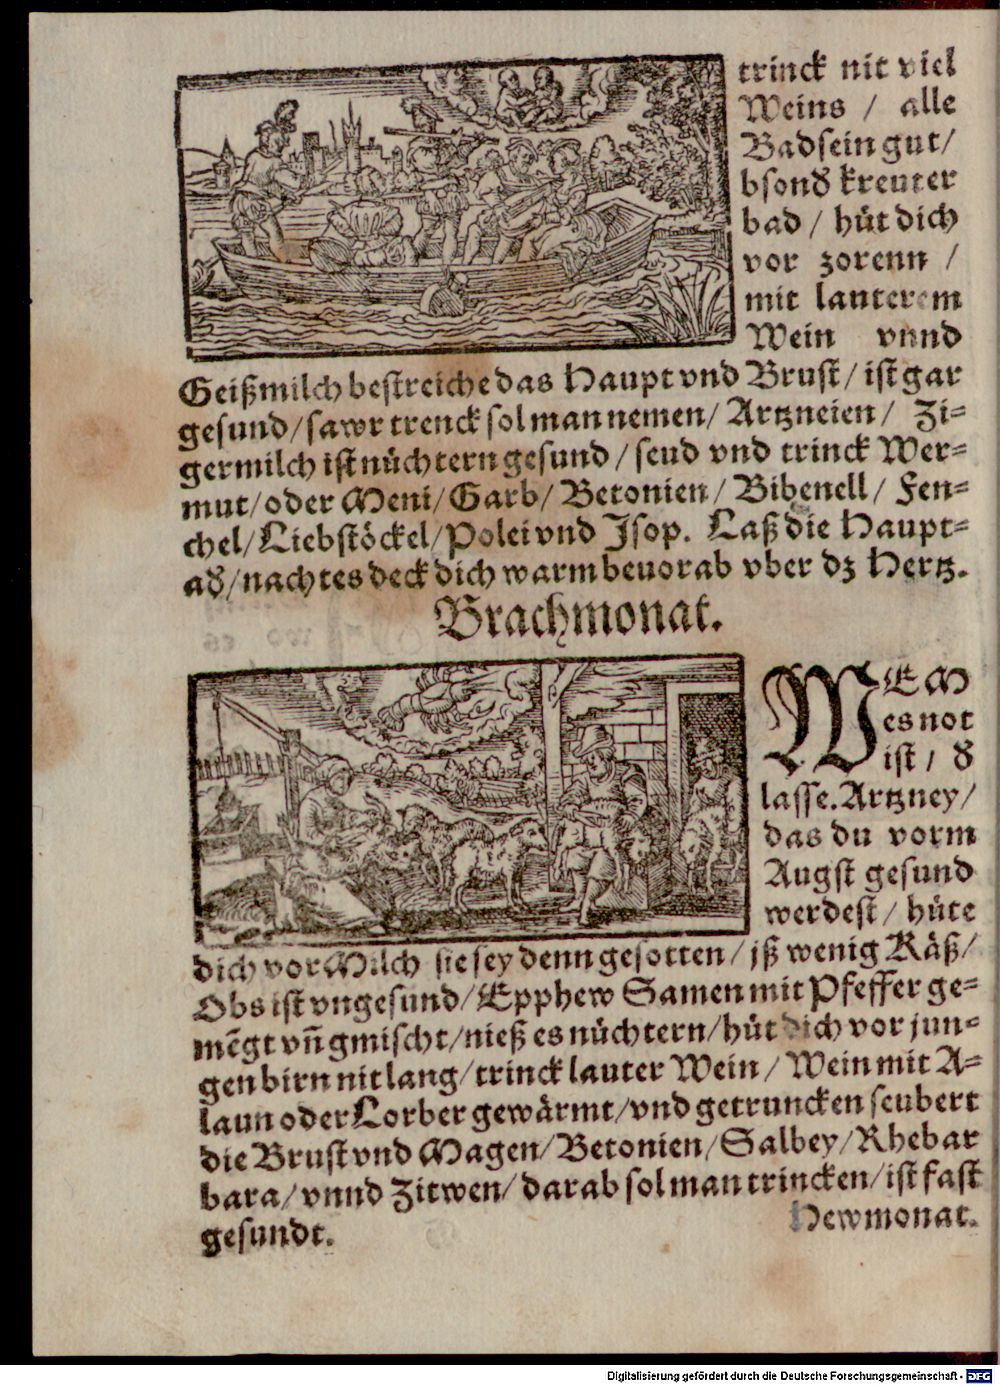 trinck nit viel
Weins / alle
Badsein gut/
bsond kreuter
bad / hüt dich
vor zorenn /
mit lauterem
Wein vnnd
Geißmilch bestreiche das Haupt vnd Brust/ ist gar
gesund/sawr trenck sol man nemen/ Artzneien/ Zi=
germilch ist nüchtern gesund / seud vnd trinck Wer=
mut/oder Meni/Garb/ Betonien/ Bibenell/ Fen=
chel/Liebstöckel/Polei vnd Isop. Laß die Haupt=
ad/nachtes deck dich warm beuorab vber dz Hertz.
Brachmonat.
WEM
es not
ist / d
lasse. Artzney/
das du vorm
Augst gesund
werdest / hüte
dich vor Milch sie sey denn gesotten/ jß wenig Käß/
Obs ist vngesund/Epphew Samen mit Pfeffer ge=
mẽgt vñ gmischt/nieß es nüchtern/hüt dich vor jun=
gen birn nit lang/trinck lauter Wein/ Wein mit A=
laun oder Lorber gewärmt/vnd getruncken seubert
die Brust vnd Magen/Betonien/Salbey/Rhebar
bara/vnnd Zitwen/darab sol man trincken/ist fast
gesundt.
Hewmonat.
Digitalisierung gefördert durch die Deutsche Forschungsgemeinschaft - DFG